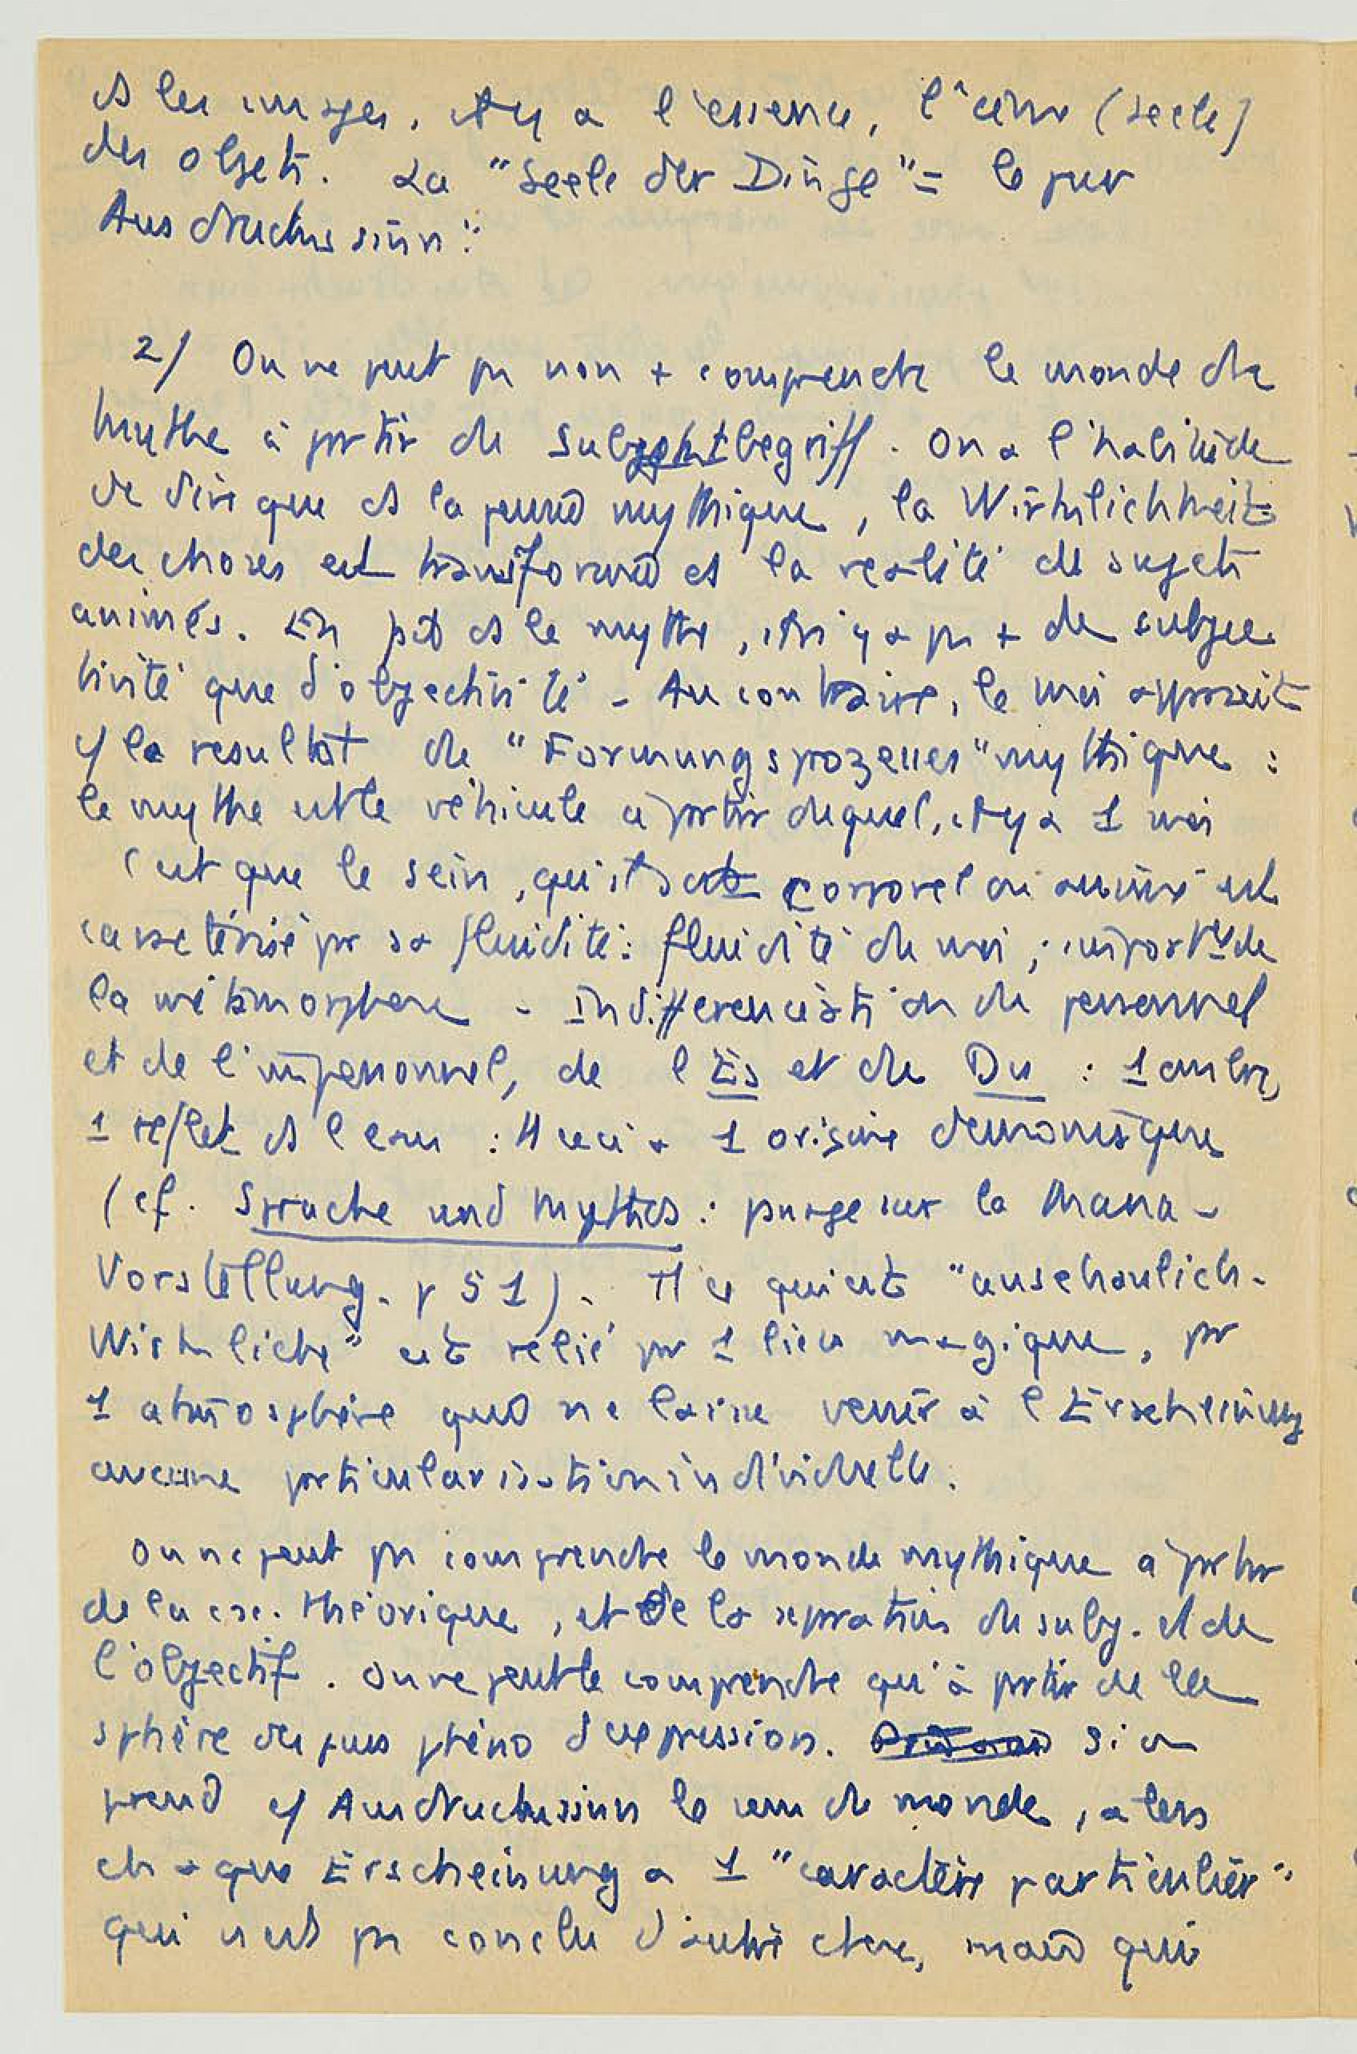 ds les images, il y a l'essence, l'âme (Seele)
des objets. La "Seele der Dinge" = le pur
Ausdruckssinn".
2/ On ne peut pas non + comprendre le monde du
mythe à partir du Subjektbegriff. On a l'habitude
de dire que ds la pensée mythique, la Wirklichkeit
des choses est transformée ds la réalité de sujets
animés. En fait ds le mythe, il n'y a pas + de subjec
tivité que d'objectivité - Au contraire, le moi apparaît
c/ le resultat du "Formungsprozesses" mythique :
le mythe est le véhicule à partir duquel, il y a 1 moi
C'est que le sein, qu'il soit corporel ou animé est
caractérisé par sa fluidité : fluidité du moi ; import. de
la métamorphose - Indifférenciation du personnel
et de l'impersonnel, de l'Es et du Du : 1 ombre,
1 reflet ds l'eau : tt ceci a 1 origine démoniaque
(cf. Sprache und Mythos : passage sur la Mana-
Vorstellung. p 51). Tt ce qui est "anschaulich-
Wirkliche" est relié par 1 lien magique, par
1 atmosphère qui ne laisse venir à l'Erscheinung
aucune particularisation individuelle.
On ne peut pas comprendre le monde mythique à partir
de la théorique, et de la séparation du subj. et de
l'objectif. On ne peut le comprendre qu'à partir de la
sphère des purs phéno d'expression. Si on
prend c/ Ausdruckssinn le sens du monde, alors
chaque Erscheinung a 1 "caractère particulier"
qui n'est pas conclu d'autre chose, mais qui